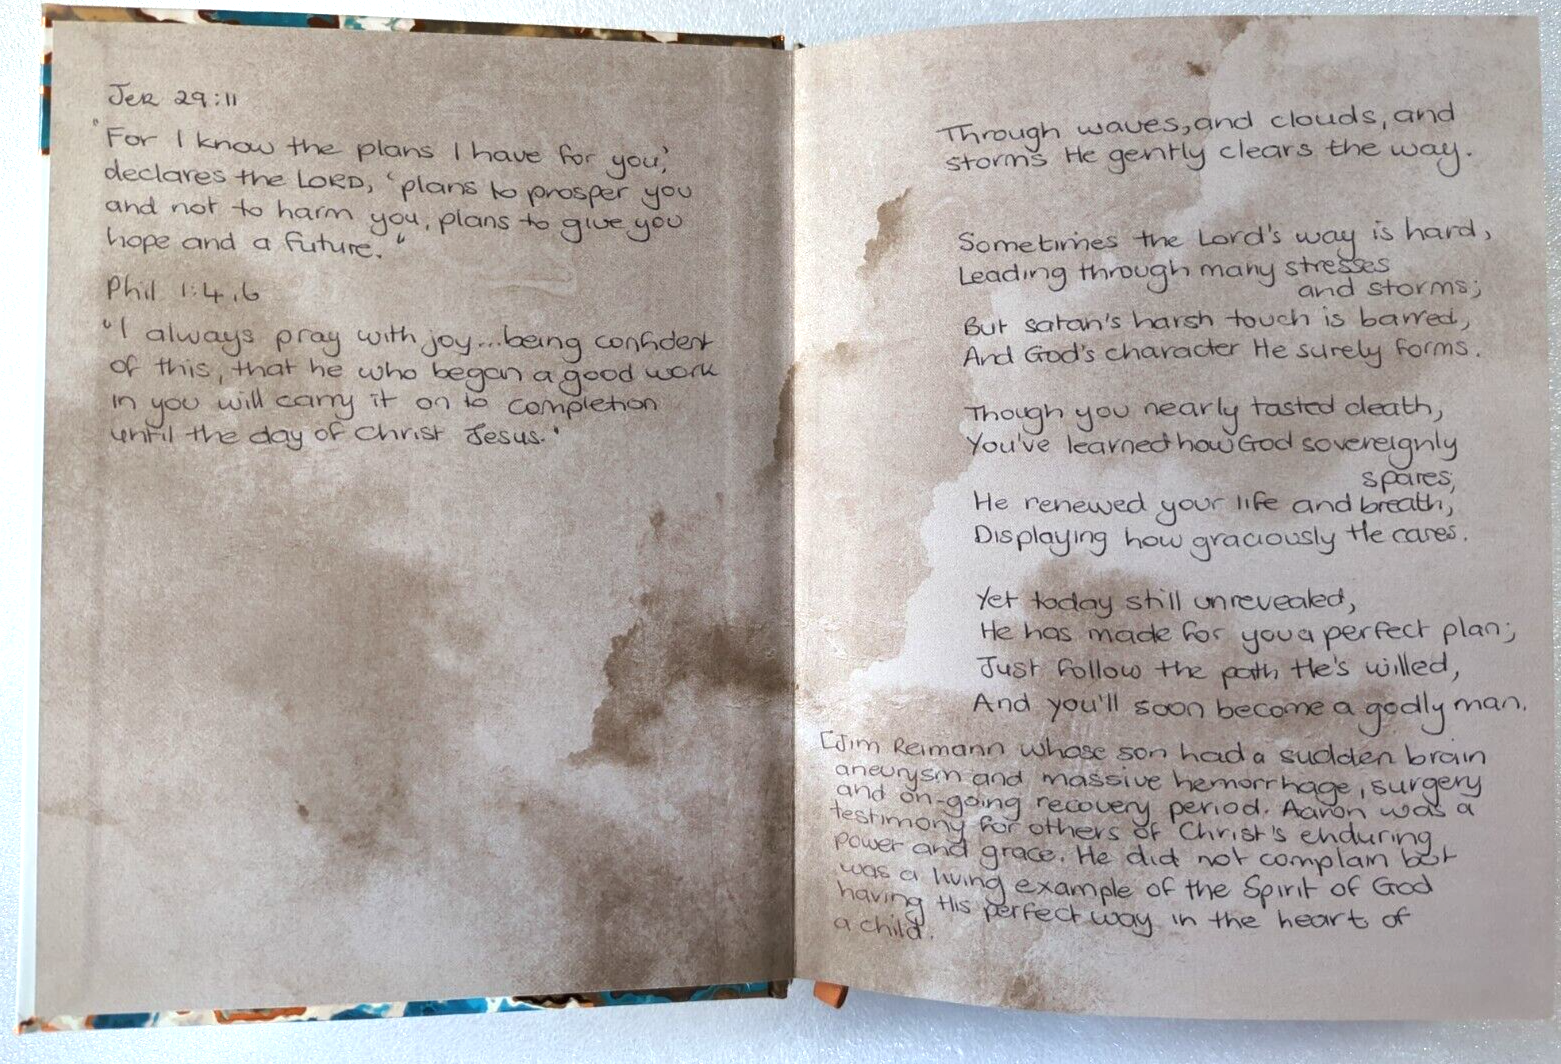 Jer 29:11
"For I know the plans I have for you,'
declares the LORD, 'plans to prosper you
and not to harm you, plans to give you
hope and a future."
Phil 1:4,6
"I always pray with joy...being confident
of this, that he who began a good work
in you will carry it on to completion
until the day of Christ Jesus."
Through waves, and clouds, and
storms He gently clears the way.
Sometimes the Lord's way is hard,
Leading through many stresses
and storms;
But satan's harsh touch is barred,
And God's character He surely forms.
Though you nearly tasted death,
You've learned how God sovereignly
spares;
He renewed your life and breath,
Displaying how graciously He cares.
Yet today still unrevealed,
He has made for you a perfect plan;
Just follow the path He's willed,
And you'll soon become a godly man.
[Jim Reimann whose son had a sudden brain
aneurysm and massive hemorrhage, surgery
and on-going recovery period. Aaron was a
testimony for others of Christ's enduring
power and grace. He did not complain but
was a living example of the Spirit of God
having His perfect way in the heart of
a child.